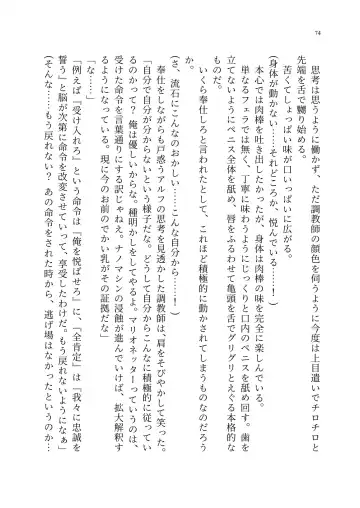 74
　思考は思うように働かず、ただ調教師の顔色を伺うように今度は上目遣いでチロチロと
先端を舌で嬲り始める。
　苦くてしょっぱい味が口いっぱいに広がる。
（身体が動かない……それどころか、悦んでいる……！
　本心では肉棒を吐き出したかったが、身体は肉棒の味を完全に楽しんでいる。
　単なるフェラでは無く、丁寧に味わうようにじっくりと口内のペニスを舐め回す。歯を
立てないようにペニス全体を舐め、唇をふるわせて亀頭を舌でグリグリとえぐる本格的な
しゃぶり方。
　いくら奉仕しろと言われたとして、これほど積極的に動かされてしまうものなのだろう
か。
（さ、流石にこんなのおかしい……こんな自分から……！）
　奉仕をしながらも戸惑うアルフの思考を見透かした調教師は、肩をそびやかして笑った。
「自分で自分が分からないという様子だな。どうして自分からこんなに積極的に従ってい
るのかって？　俺は優しいからな。種明かしをしてやるよ。マリオネッターっていうのは、
受けた命令を言葉通りにする訳じゃねえ。ナノマシンの浸蝕が進んでいけば、拡大解釈す
るようになっている。現に今のお前のでかい乳がその証拠だな」
「な……」
「例えば『受け入れろ』という命令は『俺を悦ばせろ』に、『全肯定』は『我々に忠誠を
誓う』と脳が次第に命令を改変させていって、享受したわけだ。もう戻れないようになぁ」
（そんな……もう戻れない？　あの命令をされた時から、逃げ場はなかったというのか…